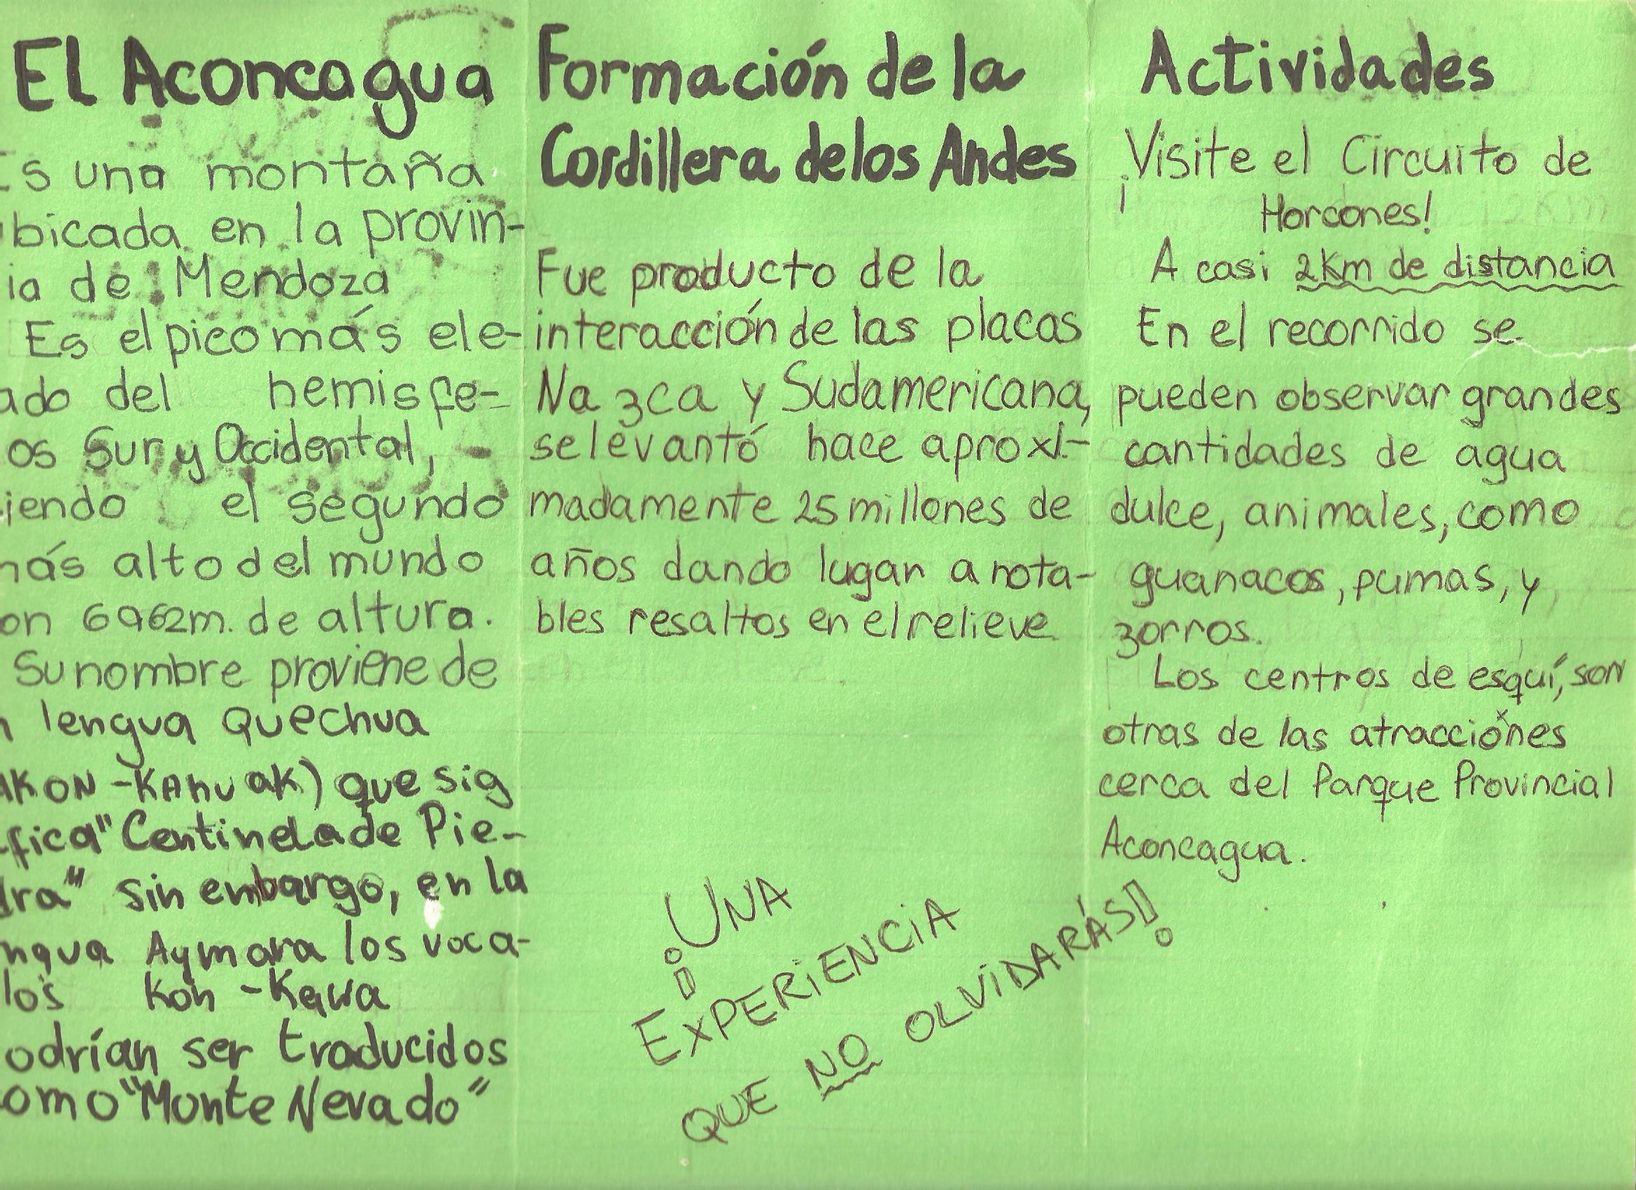 El Aconcagua
Es una montaña
ubicada en la provin-
ia de Mendoza
Es el pico más ele-
ado del hemisfe-
os Sur y Occidental,
iendo el segundo
más alto del mundo
on 6962m. de altura.
Su nombre proviene de
lengua Quechua
AKON-KAHUAK) que sig
fica "Centinela de Pie-
dra" sin embargo, en la
ngua Aymara los voca-
los Kon-Kawa
odrían ser traducidos
omo "Monte Nevado"
Formación de la
Cordillera de los Andes
Fue producto de la
interacción de las placas
Nazca y Sudamericana,
se levantó hace aproxi-
madamente 25 millones de
años dando lugar a nota-
bles resaltos en el relieve
¡UNA
EXPERIENCIA
QUE NO OLVIDARÁS!
Actividades
¡Visite el Circuito de
Horcones!
A casi 2Km de distancia
En el recorrido se
pueden observar grandes
cantidades de agua
dulce, animales, como
guanacos, pumas, y
zorros.
Los centros de esquí, son
otras de las atracciónes
cerca del Parque Provincial
Aconcagua.